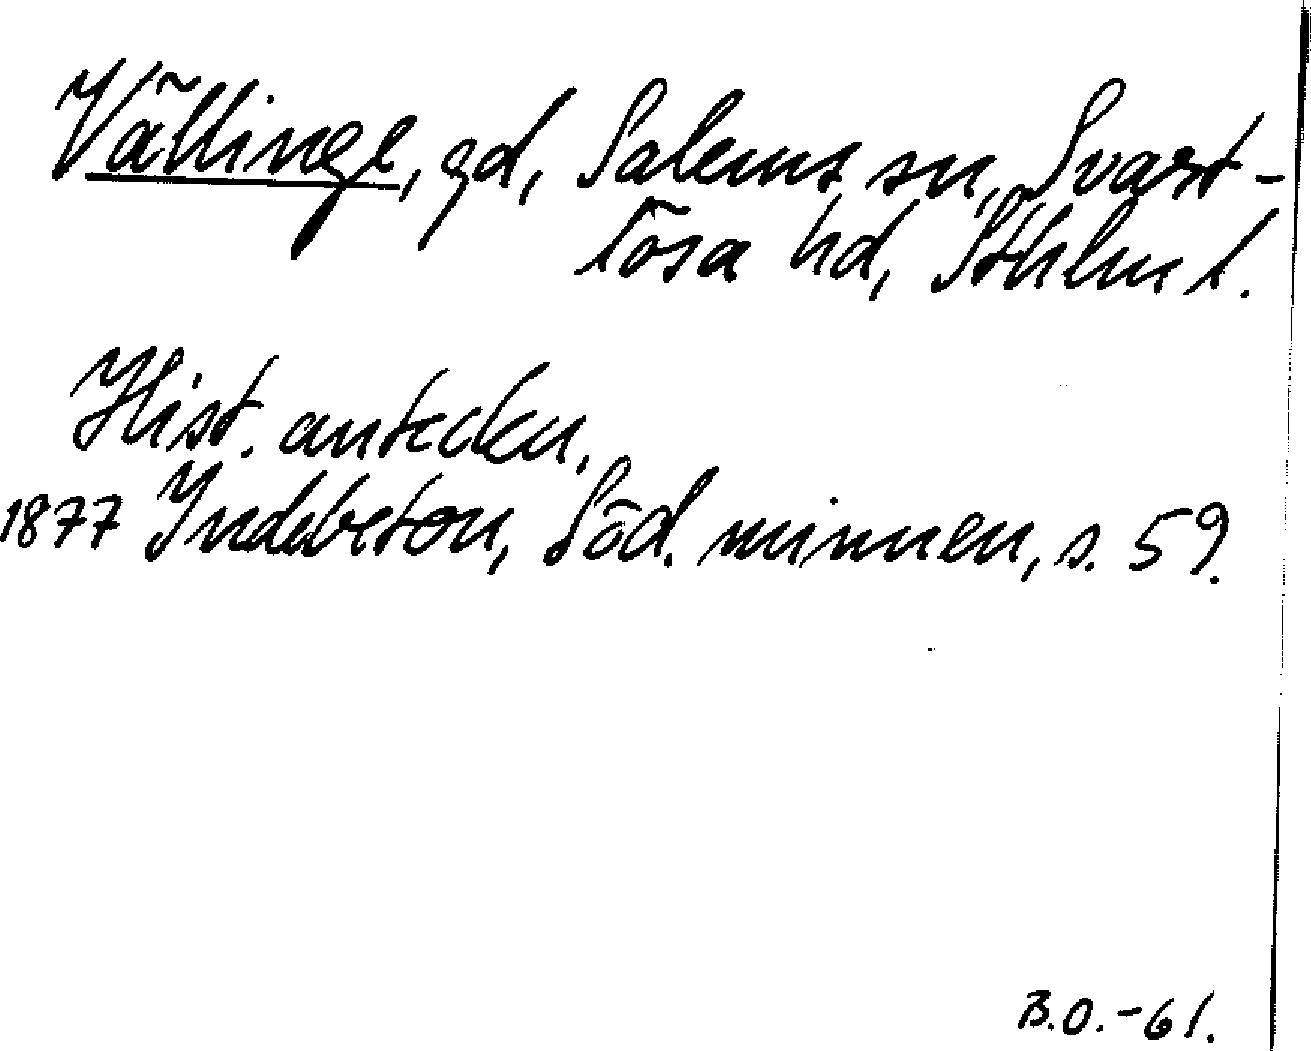 Vällinge, gd, Salems sn, Svart-
lösa hd, Sthlms l.
Hist. anteckn.
1877 Indebetou, Söd. minnen, s. 59.
B.O.-61.